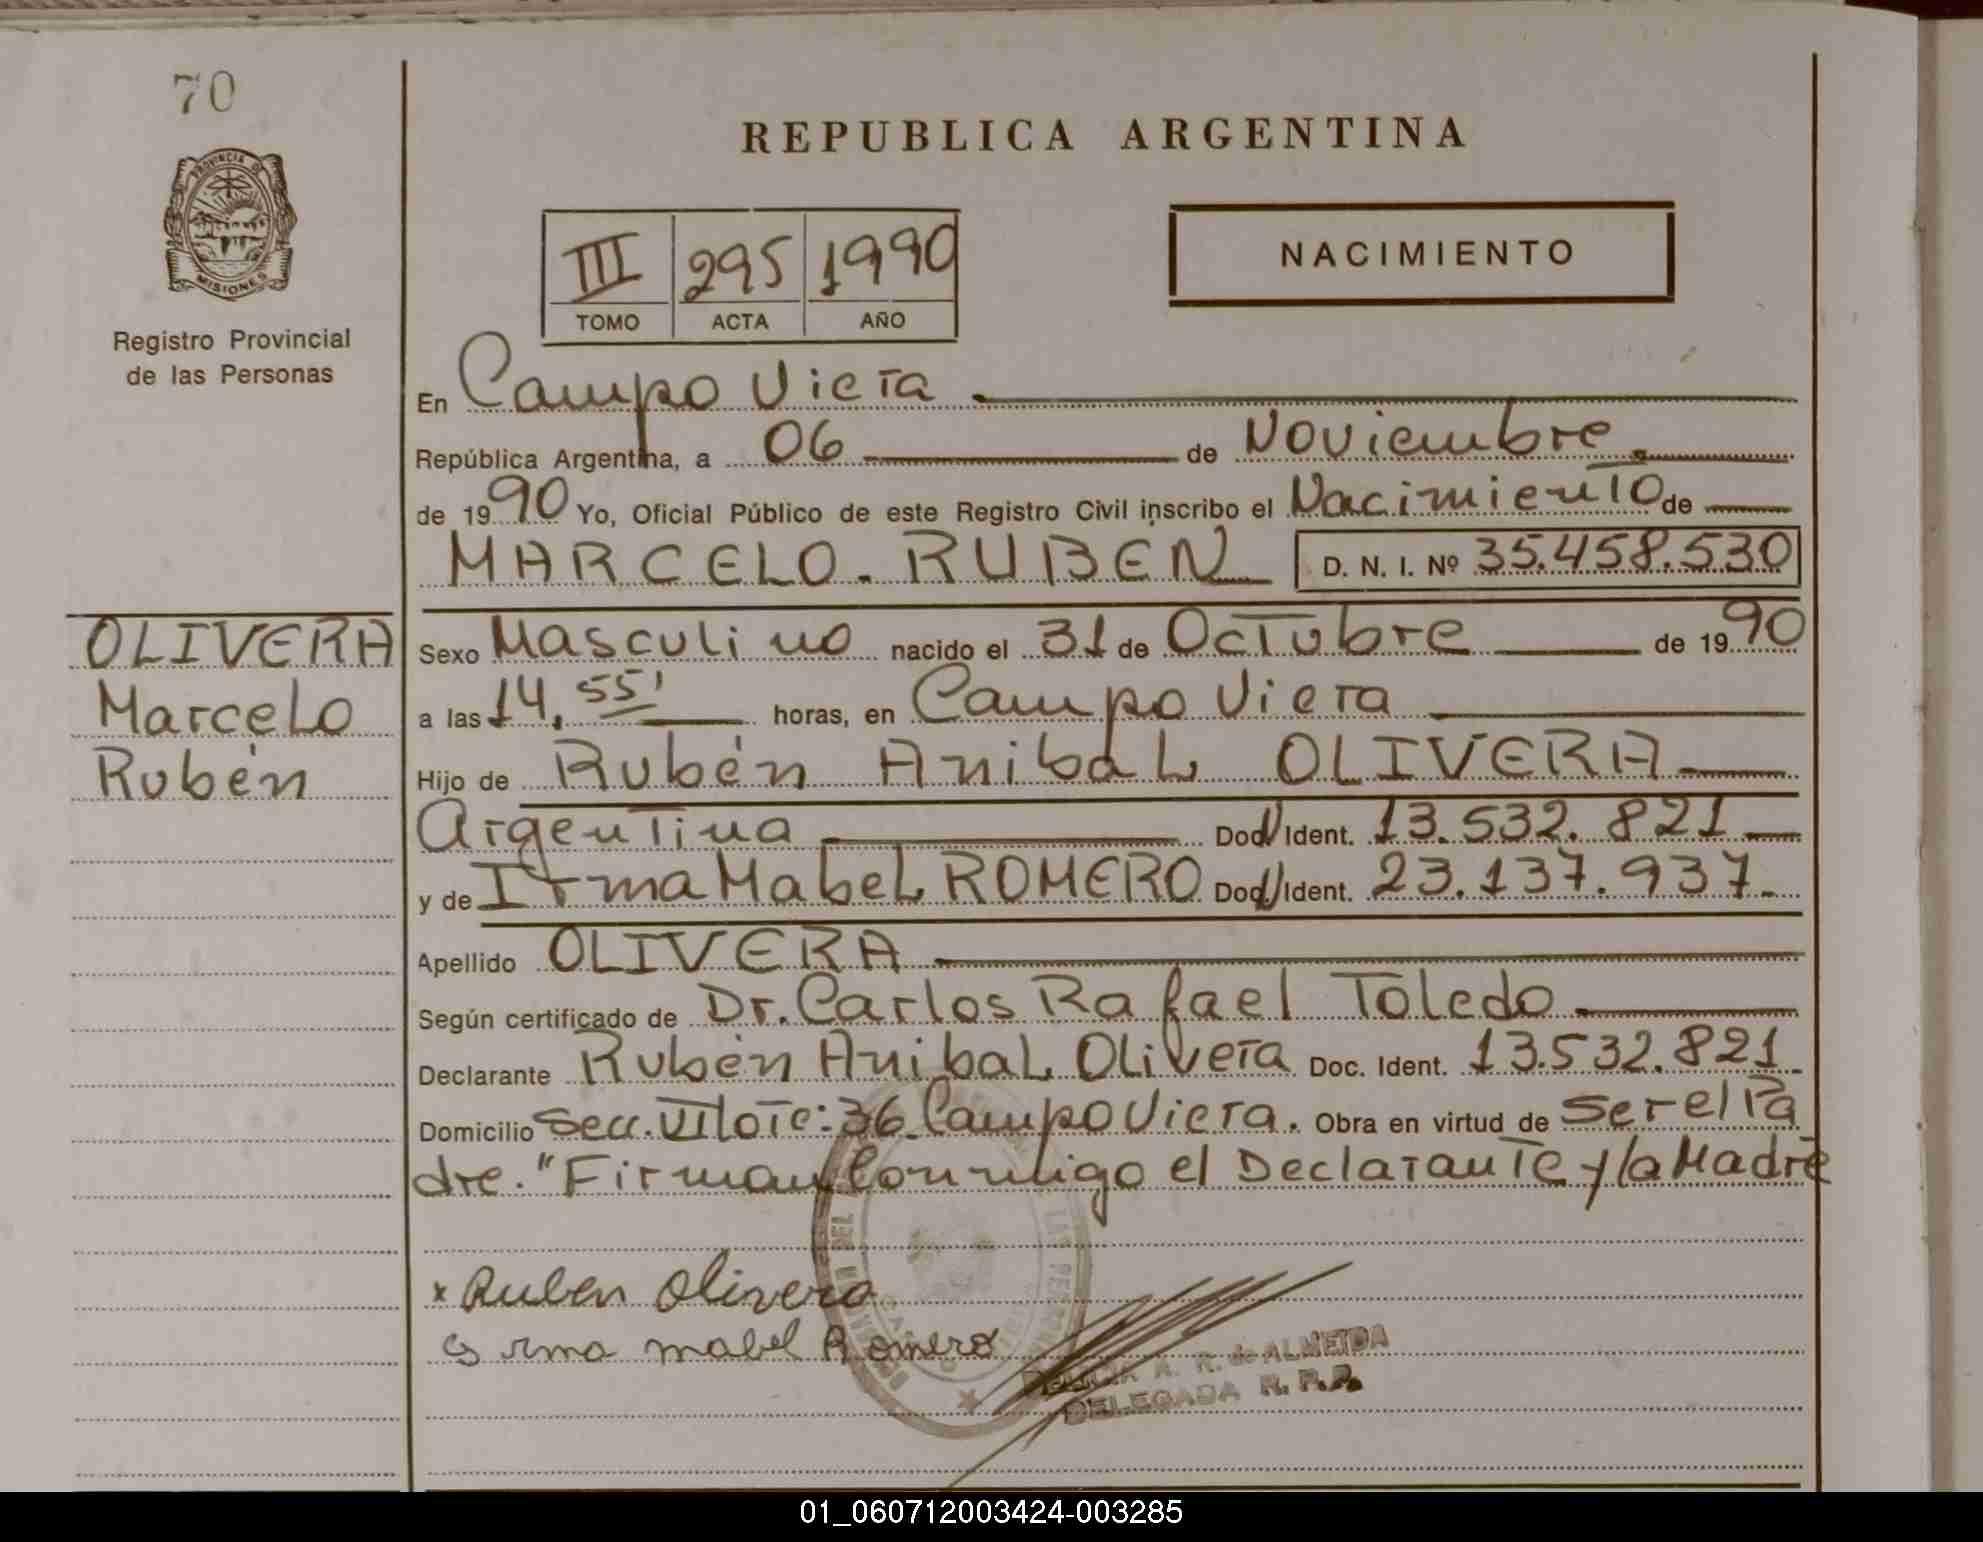 70
PROVINCIA DE
MISIONES
Registro Provincial
de las Personas
OLIVERA
Marcelo
Rubén
REPUBLICA ARGENTINA
III 295 1990
TOMO ACTA AÑO
NACIMIENTO
En Campo Viera
República Argentina, a 06 de Noviembre
de 1990 Yo, Oficial Público de este Registro Civil inscribo el Nacimiento de
MARCELO. RUBEN D. N. I. Nº 35.458.530
Sexo Masculino nacido el 31 de Octubre de 1990
a las 14,55' horas, en Campo Viera
Hijo de Rubén Anibal OLIVERA
Argentina Doc. Ident. 13.532.821
y de Irma Mabel ROMERO Doc. Ident. 23.137.937.
Apellido OLIVERA
Según certificado de Dr. Carlos Rafael Toledo
Declarante Rubén Anibal Olivera Doc. Ident. 13.532.821
Domicilio Secc. VI lote: 36 Campo Viera. Obra en virtud de Ser el Pa
dre." Firman Conmigo el Declarante y la Madre
x Ruben Olivera
Irma mabel Romero
A. R. de ALMEIDA
DELEGADA R. P. P.
01_060712003424-003285